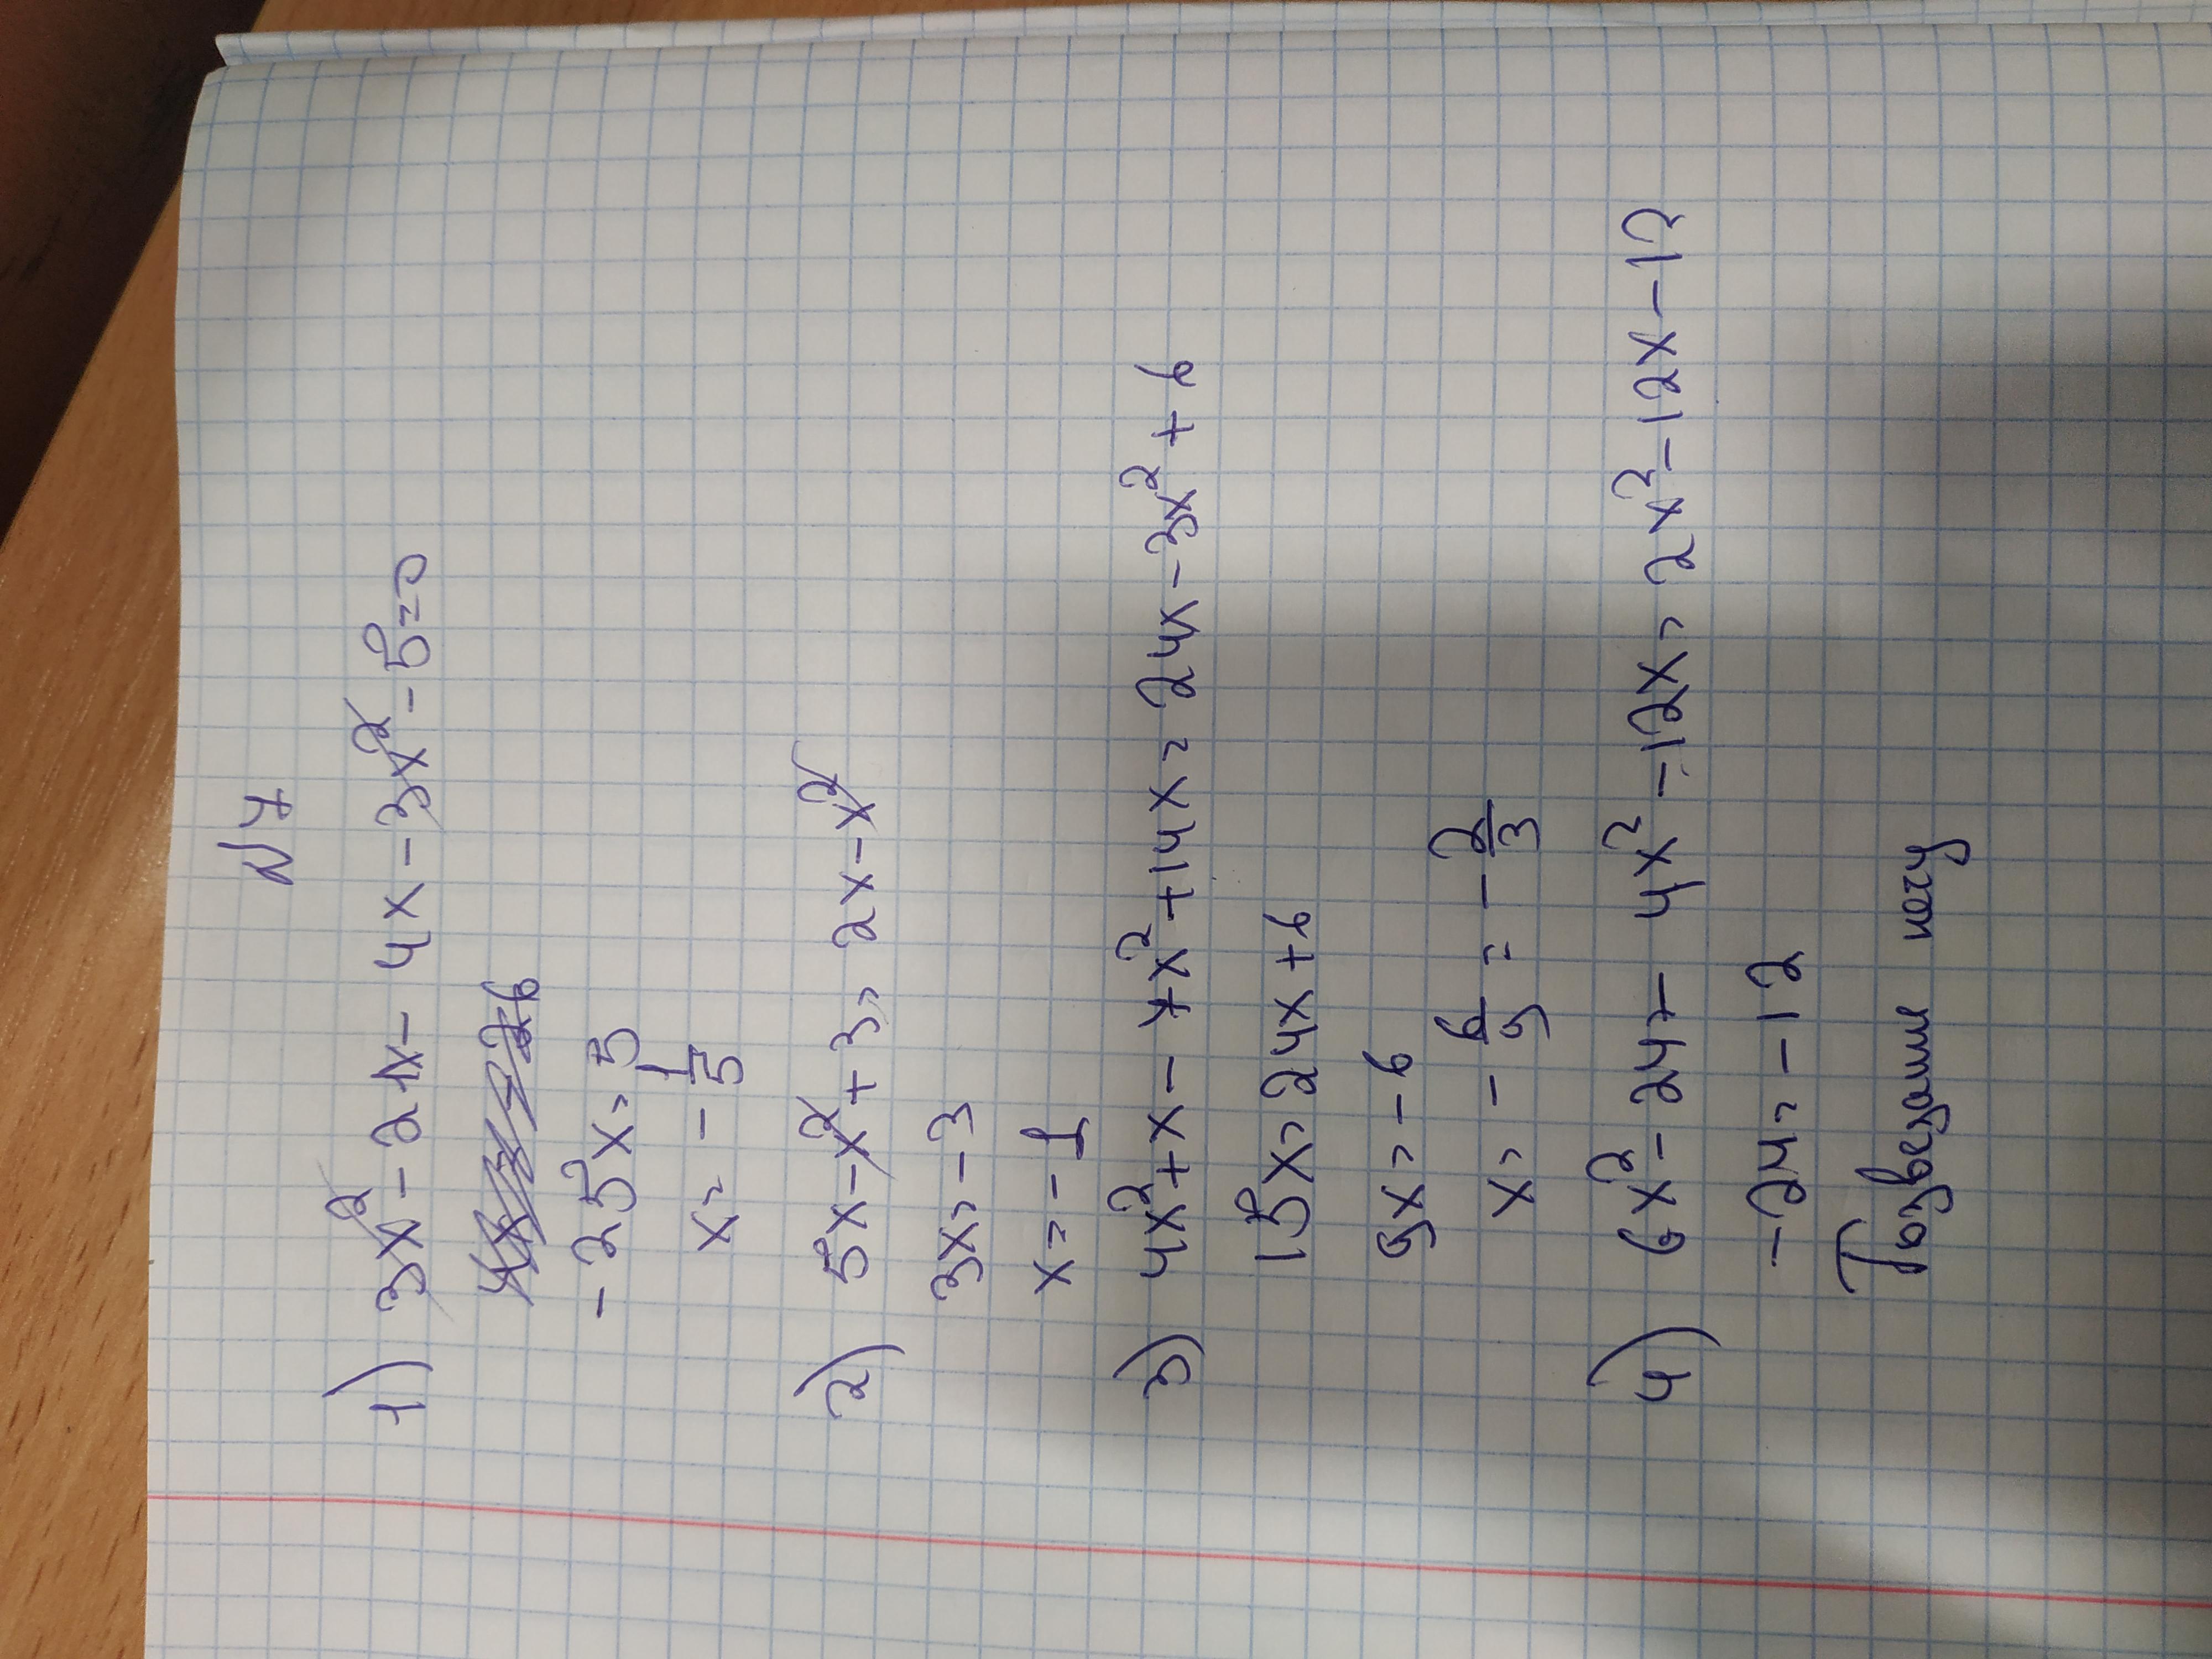 №7
1) 3x² - 21x - 4x - 3x² - 5 = 0
-25x = 5
x = - 1/5
2) 5x - x² + 3 = 2x - x²
3x = -3
x = -1
3) 4x² + x - 7x² + 14x = 24x - 3x² + 6
15x = 24x + 6
9x = -6
x = - 6/9 = - 2/3
4) 6x² - 24 - 4x² - 12x = 2x² - 12x - 12
-24 = -12